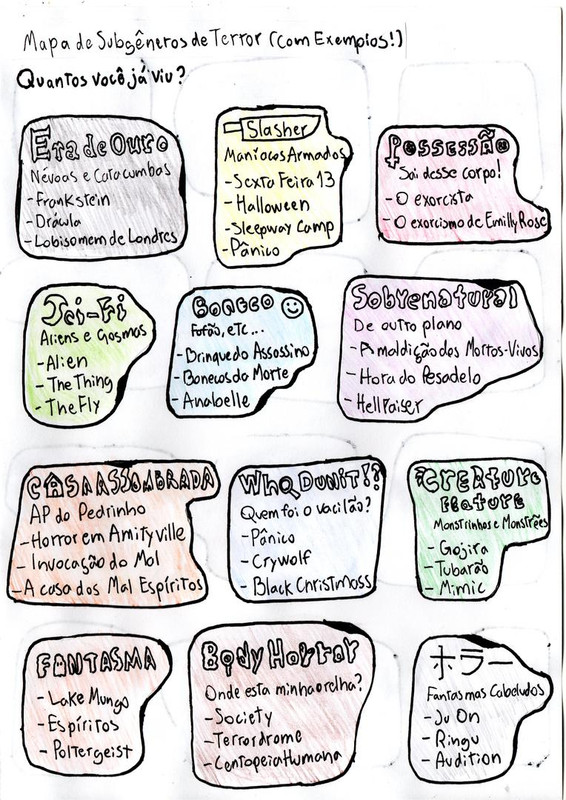 Mapa de Subgêneros de Terror (Com Exemplos!)
Quantos você já viu?
Era de Ouro
Névoas e Catacumbas
- Frankstein
- Drácula
- Lobisomem de Londres
Slasher
Maniacos Armados
- Sexta Feira 13
- Halloween
- Sleepway Camp
- Pânico
Possessão
Sai desse corpo!
- O exorcista
- O exorcismo de Emilly Rose
Sci-Fi
Aliens e Gosmas
- Alien
- The Thing
- The Fly
Boneco
Fofão, etc...
- Brinquedo Assassino
- Bonecos da Morte
- Anabelle
Sobrenatural
De outro plano
- A maldição dos Mortos-Vivos
- Hora do Pesadelo
- HellRaiser
CASA ASSOMBRADA
AP do Pedrinho
- Horror em Amityville
- Invocação do Mal
- A casa dos Mal Espíritos
WhoDunit!?
Quem foi o vacilão?
- Pânico
- Crywolf
- Black Christmass
CREATURE
FEATURE
Monstrinhos e Monstrões
- Gojira
- Tubarão
- Mimic
FANTASMA
- Lake Mungo
- Espíritos
- Poltergeist
Body Horror
Onde esta minha orelha?
- Society
- Terrordrome
- Centopeia Humana
ホラー
Fantasmas Cabeludos
- Ju On
- Ringu
- Audition